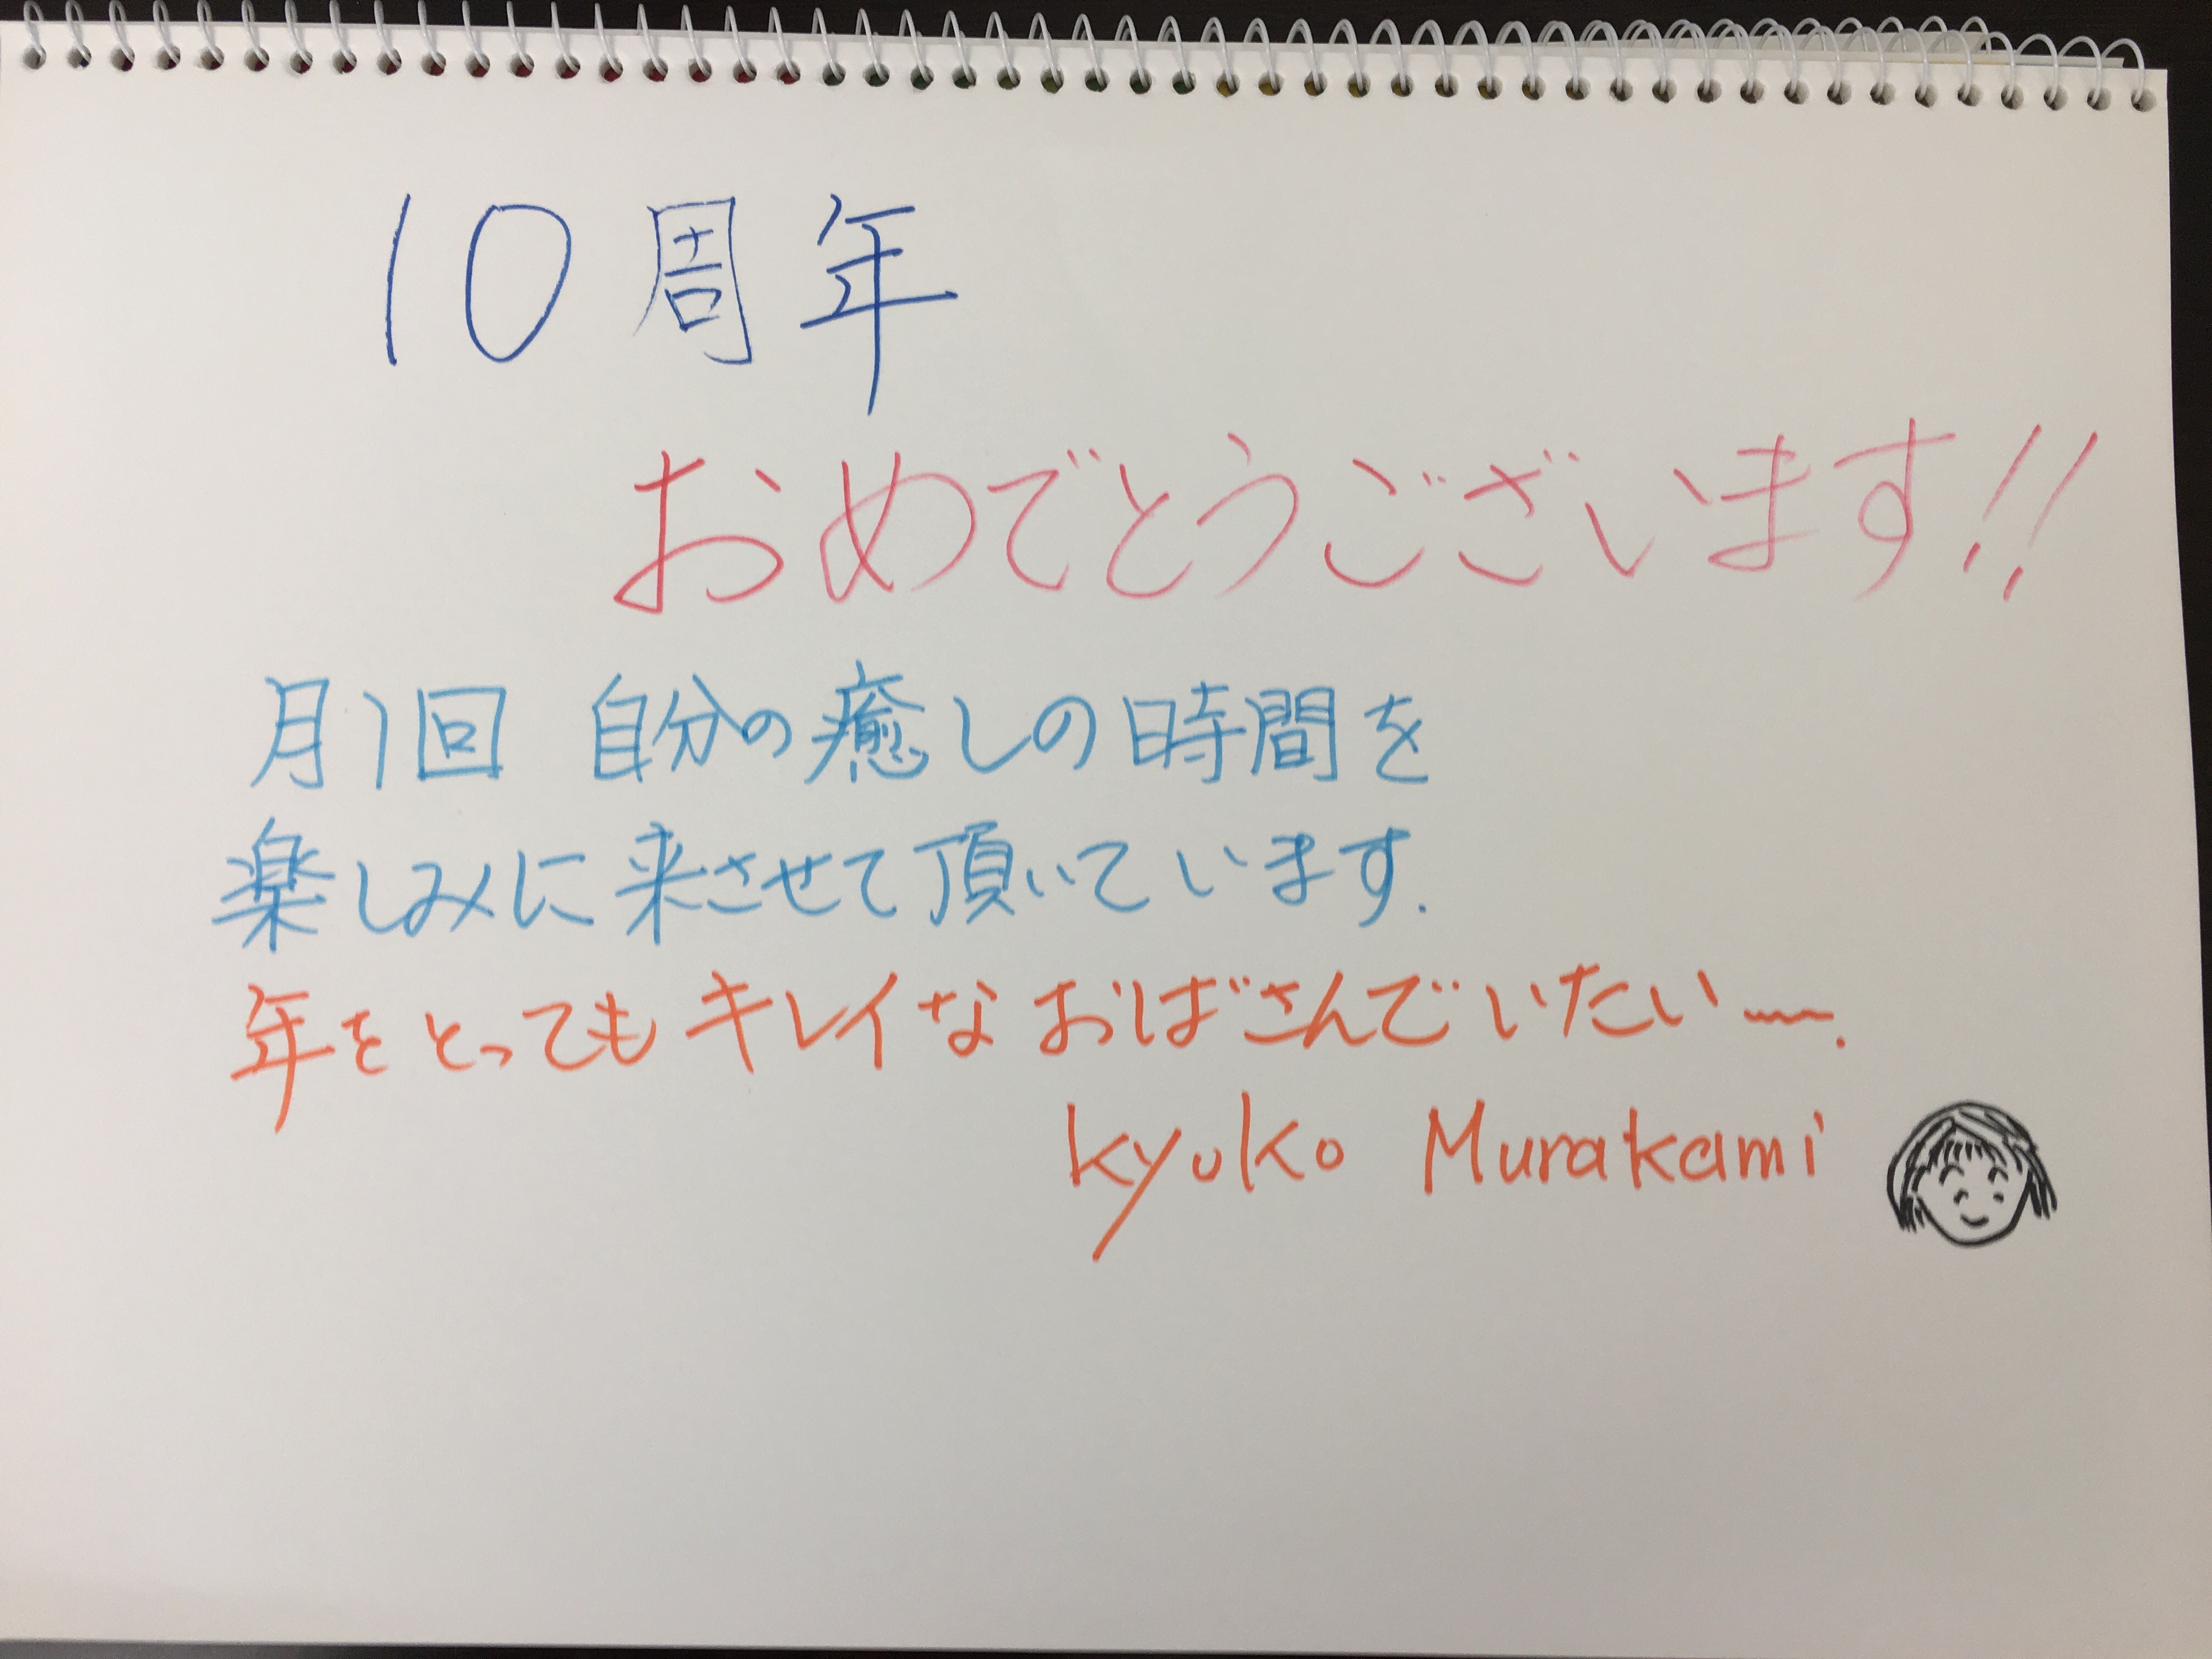 10周年
おめでとうございます!!
月1回 自分の癒しの時間を
楽しみに来させて頂いています.
年をとってもキレイなおばさんでいたい〜.
kyoko Murakami